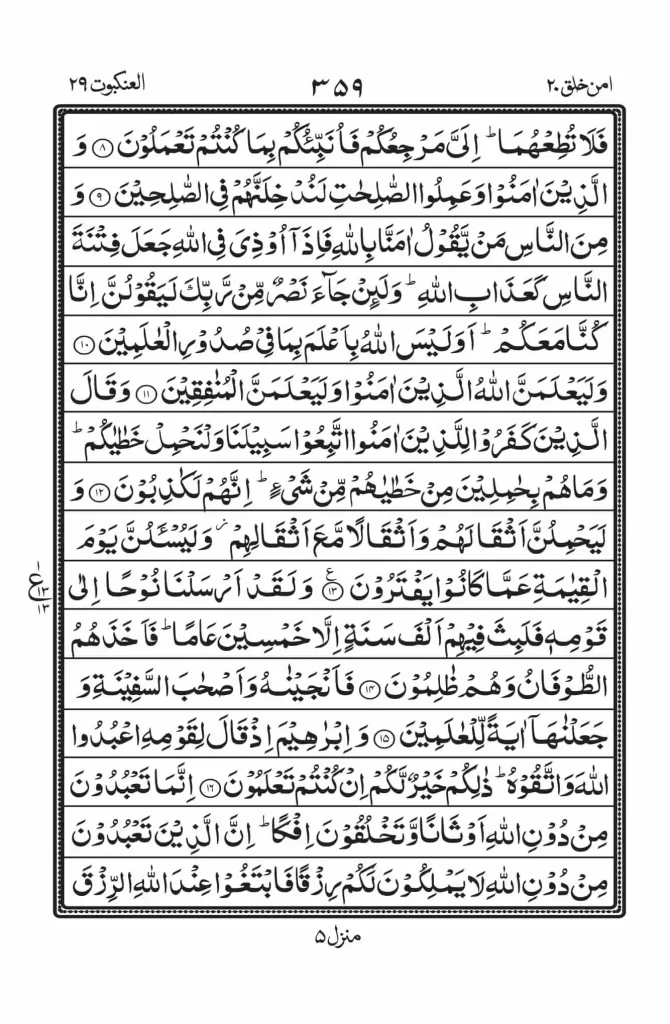 امن خلق ٢٠ ٣۵٩ العنکبوت ٢٩
فَلَا تُطِعْهُمَا ؕ اِلَیَّ مَرْجِعُكُمْ فَاُنَبِّئُكُمْ بِمَا كُنْتُمْ تَعْمَلُوْنَ ۝۸ وَ
الَّذِیْنَ اٰمَنُوْا وَعَمِلُوا الصّٰلِحٰتِ لَنُدْخِلَنَّهُمْ فِی الصّٰلِحِیْنَ ۝۹ وَ
مِنَ النَّاسِ مَنْ یَّقُوْلُ اٰمَنَّا بِاللهِ فَاِذَاۤ اُوْذِیَ فِی اللهِ جَعَلَ فِتْنَةَ
النَّاسِ كَعَذَابِ اللهِ ؕ وَلَىِٕنْ جَآءَ نَصْرٌ مِّنْ رَّبِّكَ لَیَقُوْلُنَّ اِنَّا
كُنَّا مَعَكُمْ ؕ اَوَلَیْسَ اللهُ بِاَعْلَمَ بِمَا فِیْ صُدُوْرِ الْعٰلَمِیْنَ ۝۱۰
وَلَیَعْلَمَنَّ اللهُ الَّذِیْنَ اٰمَنُوْا وَلَیَعْلَمَنَّ الْمُنٰفِقِیْنَ ۝۱۱ وَقَالَ
الَّذِیْنَ كَفَرُوْا لِلَّذِیْنَ اٰمَنُوا اتَّبِعُوْا سَبِیْلَنَا وَلْنَحْمِلْ خَطٰیٰكُمْ ؕ
وَمَا هُمْ بِحٰمِلِیْنَ مِنْ خَطٰیٰهُمْ مِّنْ شَیْءٍ ؕ اِنَّهُمْ لَكٰذِبُوْنَ ۝۱۲ وَ
لَیَحْمِلُنَّ اَثْقَالَهُمْ وَاَثْقَالًا مَّعَ اَثْقَالِهِمْ ؗ وَلَیُسْـَٔلُنَّ یَوْمَ
الْقِیٰمَةِ عَمَّا كَانُوْا یَفْتَرُوْنَ ۝۱۳ ع وَلَقَدْ اَرْسَلْنَا نُوْحًا اِلٰی
ع ١ ١٣ ١٣
قَوْمِهٖ فَلَبِثَ فِیْهِمْ اَلْفَ سَنَةٍ اِلَّا خَمْسِیْنَ عَامًا ؕ فَاَخَذَهُمُ
الطُّوْفَانُ وَهُمْ ظٰلِمُوْنَ ۝۱۴ فَاَنْجَیْنٰهُ وَاَصْحٰبَ السَّفِیْنَةِ وَ
جَعَلْنٰهَاۤ اٰیَةً لِّلْعٰلَمِیْنَ ۝۱۵ وَاِبْرٰهِیْمَ اِذْ قَالَ لِقَوْمِهِ اعْبُدُوا
اللهَ وَاتَّقُوْهُ ؕ ذٰلِكُمْ خَیْرٌ لَّكُمْ اِنْ كُنْتُمْ تَعْلَمُوْنَ ۝۱۶ اِنَّمَا تَعْبُدُوْنَ
مِنْ دُوْنِ اللهِ اَوْثَانًا وَّتَخْلُقُوْنَ اِفْكًا ؕ اِنَّ الَّذِیْنَ تَعْبُدُوْنَ
مِنْ دُوْنِ اللهِ لَا یَمْلِكُوْنَ لَكُمْ رِزْقًا فَابْتَغُوْا عِنْدَ اللهِ الرِّزْقَ
منزل ۵